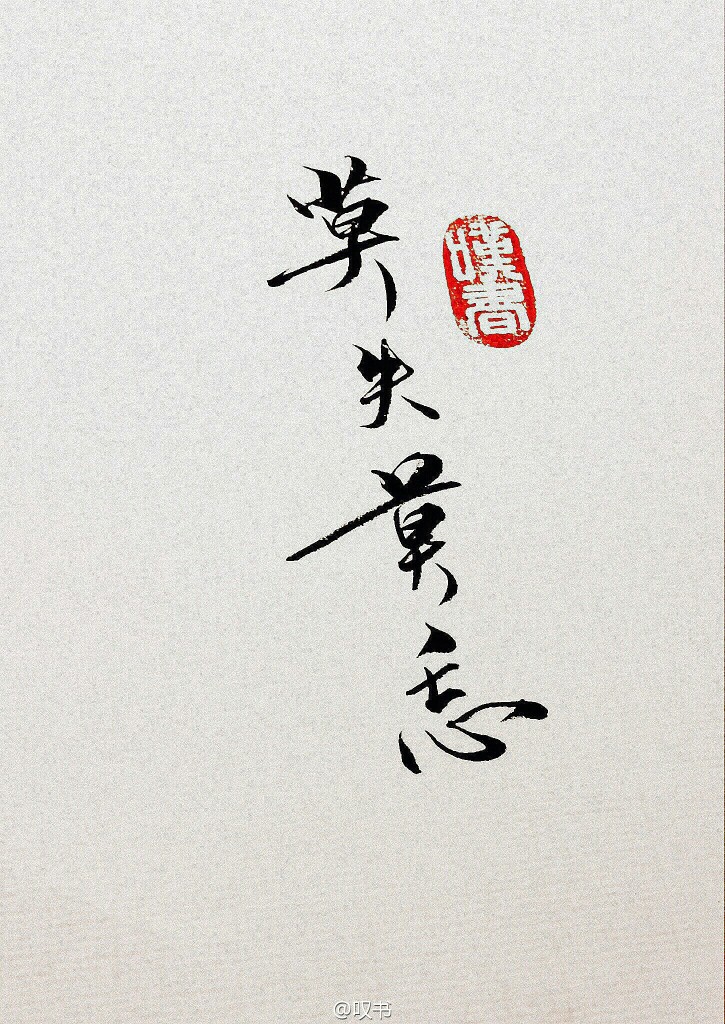 莫失莫忘
嘆書
@叹书